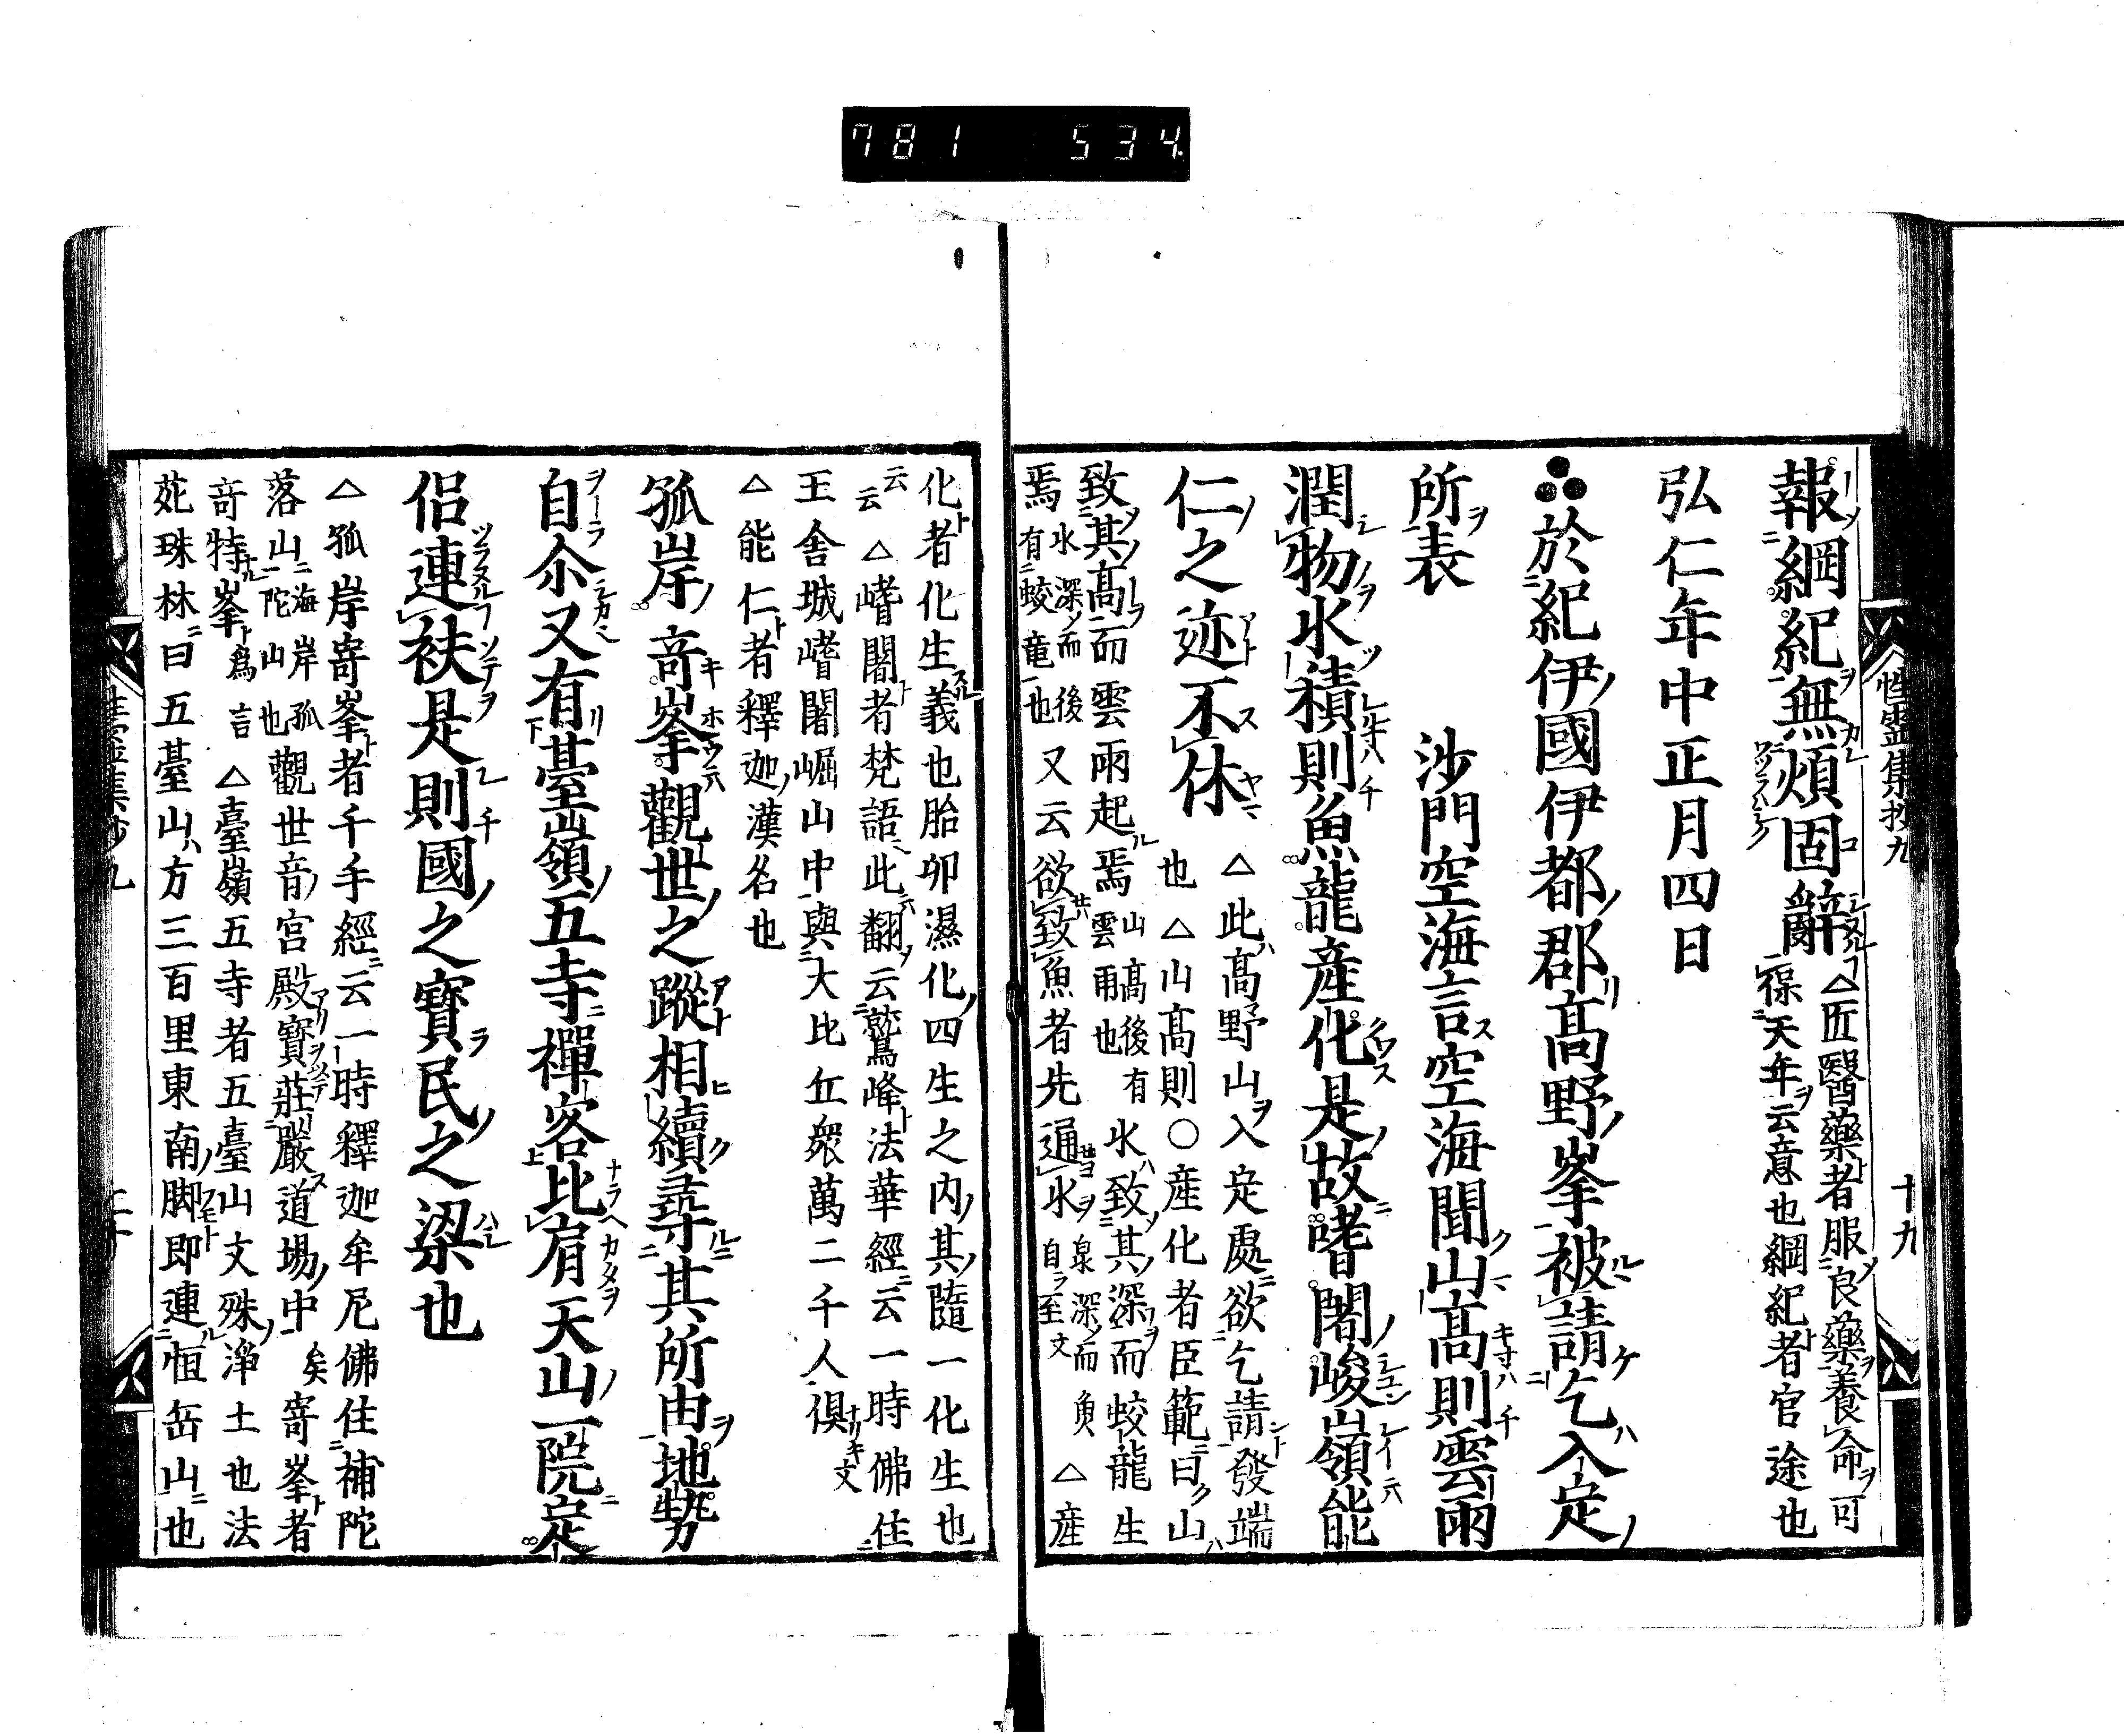 781 534
性靈集抄九 十九
報綱紀無煩固辭 △匠醫藥者服良藥養命可
葆天年云意也綱紀者官途也
弘仁年中正月四日
於紀伊國伊都郡高野峯被請乞入定
所表 沙門空海言空海聞山高則雲雨
潤物水積則魚龍産化是故嗜闍峻嶺能
仁之迹不休 △此高野山入定處欲乞請發端
也△山高則○産化者臣範曰山
致其高而雲雨起焉 山高後有雲雨也 水致其深而蛟龍生
焉 水深而後有蛟竜也 又云欲致魚者先通水 泉深而魚自至文 △産
化者化生義也胎卵濕化四生之内其隨一化生也
云云 △嗜闍者梵語此翻云鷲峰法華經云一時佛住
王舎城嗜闍崛山中與大比丘衆萬二千人倶 文
△能仁者釋迦漢名也
孤岸奇峯觀世之蹤相續尋其所由地勢
自尒又有臺嶺五寺禪客比肩天山一院定
侶連袂是則國之寶民之梁也
△孤岸寄峯者千手經云一時釋迦牟尼佛住補陀
落山 海岸孤陀山山也 觀世音宮殿寶莊嚴道場中 矣 寄峯者
奇特峯爲言 △臺嶺五寺者五臺山文殊淨土也法
苑珠林曰五臺山方三百里東南脚即連恒岳山也
性靈集抄九 二十